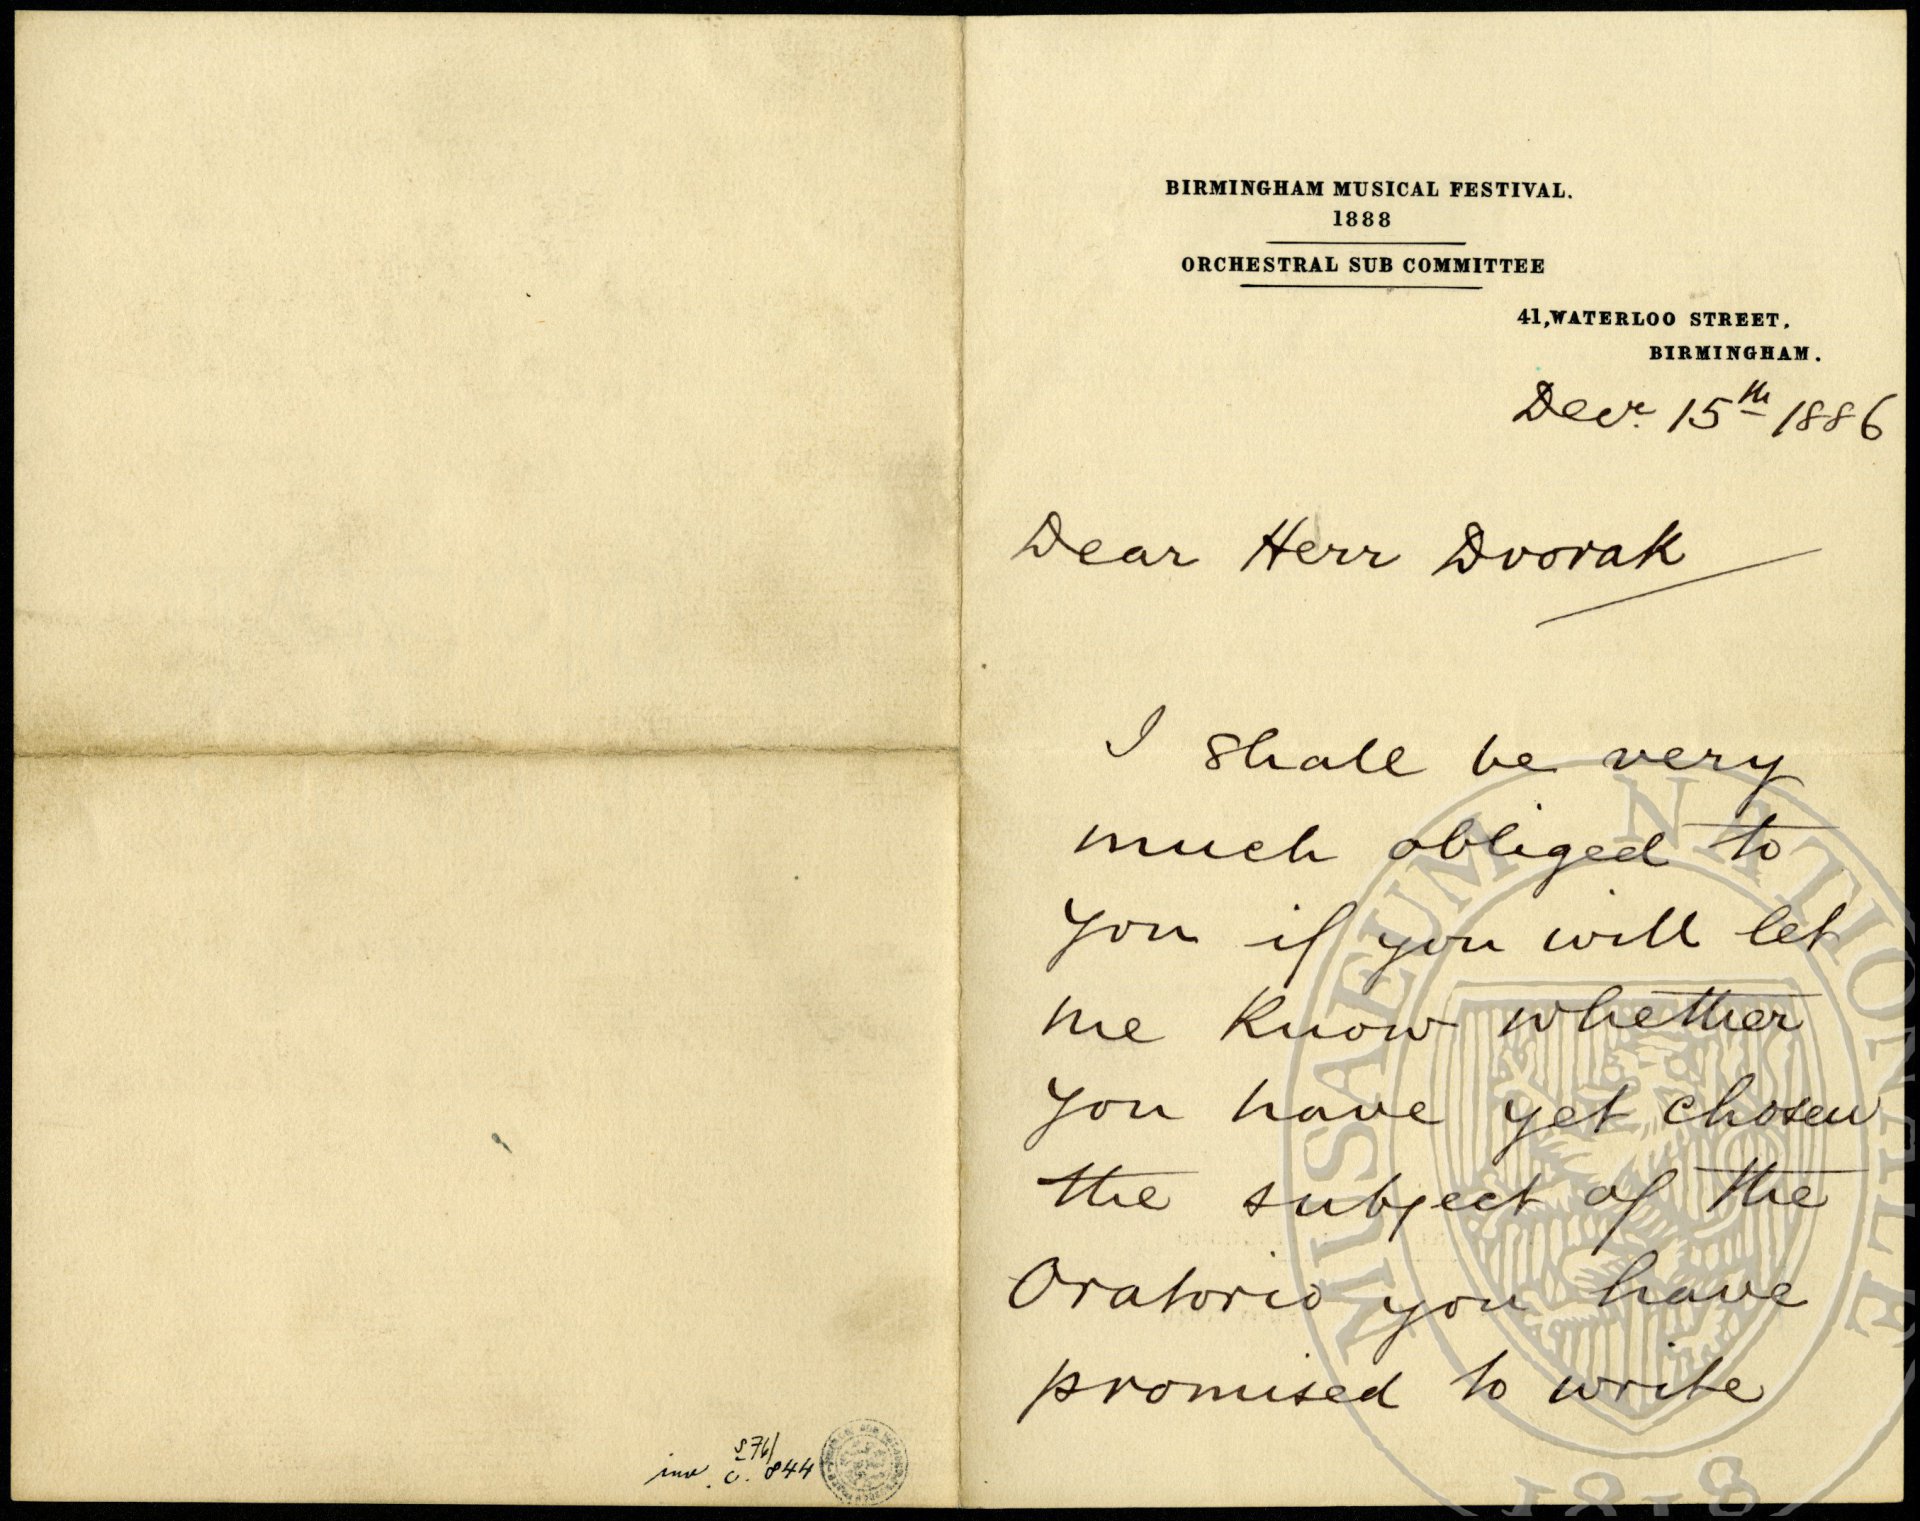 BIRMINGHAM MUSICAL FESTIVAL.
1888
ORCHESTRAL SUB COMMITTEE
41, WATERLOO STREET.
BIRMINGHAM.
Decr. 15th 1886
Dear Herr Dvorak
I shall be very
much obliged to
you if you will let
me know whether
you have yet chosen
the subject of the
Oratorio you have
promised to write
S 76/
inv. c. 844
MUSAEUM NATIONALE
1818